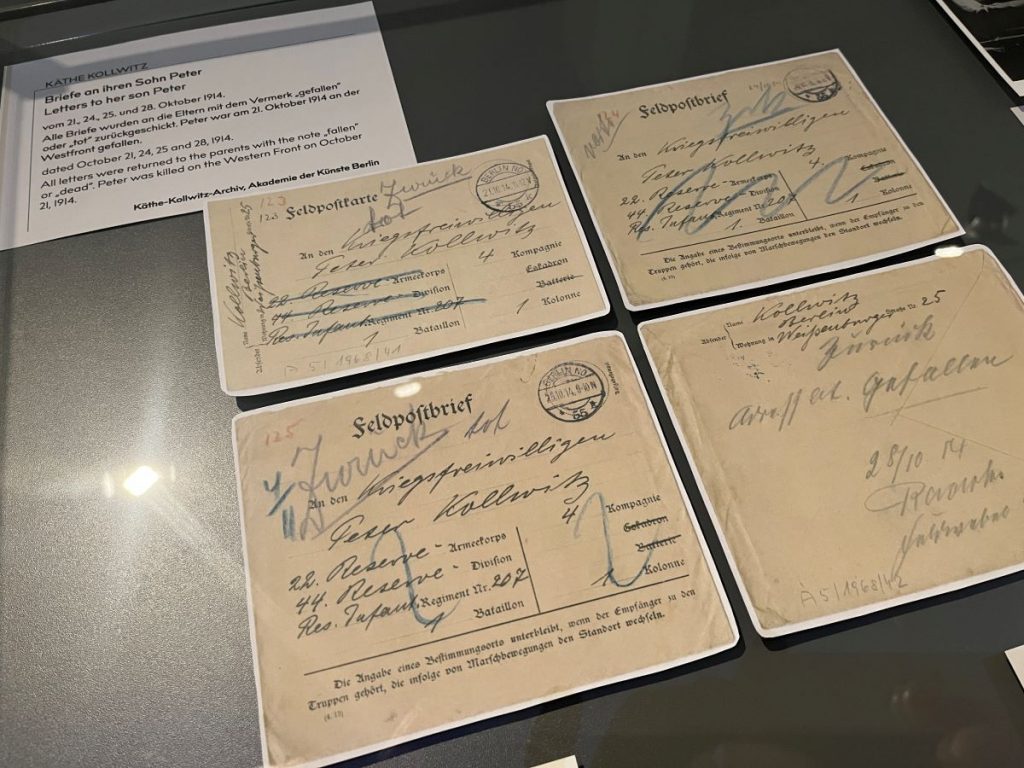 KÄTHE KOLLWITZ
Briefe an ihren Sohn Peter
Letters to her son Peter
vom 21., 24., 25. und 28. Oktober 1914.
Alle Briefe wurden an die Eltern mit dem Vermerk „gefallen“
oder „tot“ zurückgeschickt. Peter war am 21. Oktober 1914 an der
Westfront gefallen.
dated October 21, 24, 25 and 28, 1914.
All letters were returned to the parents with the note „fallen“
or „dead“. Peter was killed on the Western Front on October
21, 1914.
Käthe-Kollwitz-Archiv, Akademie der Künste Berlin
123
123 Feldpostkarte Zurück
tot
BERLIN NO.
21.10.14.
55
An den Kriegsfreiwilligen
Peter Kollwitz
22. Reserve- Armeecorps
44. Reserve- Division
Res. Infant. Regiment Nr. 207
1 Bataillon
4 Kompagnie
Eskadron
Batterie
1 Kolonne
Absender
Name Kollwitz
Berlin
Wohnung Weißenburgerstr 25
A 5/1968/41
Feldpostbrief
zurück
An den Kriegsfreiwilligen
Peter Kollwitz
22. Reserve- Armeecorps
44. Reserve- Division
Res. Infant. Regiment Nr. 207
1. Bataillon
4. Kompagnie
Eskadron
Batterie
1 Kolonne
Die Angabe eines Bestimmungsorts unterbleibt, wenn der Empfänger zu den
Truppen gehört, die infolge von Marschbewegungen den Standort wechseln.
125
Feldpostbrief
Zurück tot
BERLIN NO.
9-10 N
55
An den Kriegsfreiwilligen
Peter Kollwitz
22. Reserve- Armeecorps
44. Reserve- Division
Res. Infant. Regiment Nr. 207
1 Bataillon
4 Kompagnie
Eskadron
Batterie
1 Kolonne
Die Angabe eines Bestimmungsorts unterbleibt, wenn der Empfänger zu den
Truppen gehört, die infolge von Marschbewegungen den Standort wechseln.
(4. 13)
Absender
Name Kollwitz
Berlin
Wohnung in Weißenburger Straße Nr. 25
Zurück
Gefallen
28/10 14
Feldwebel
A 5/1968/42